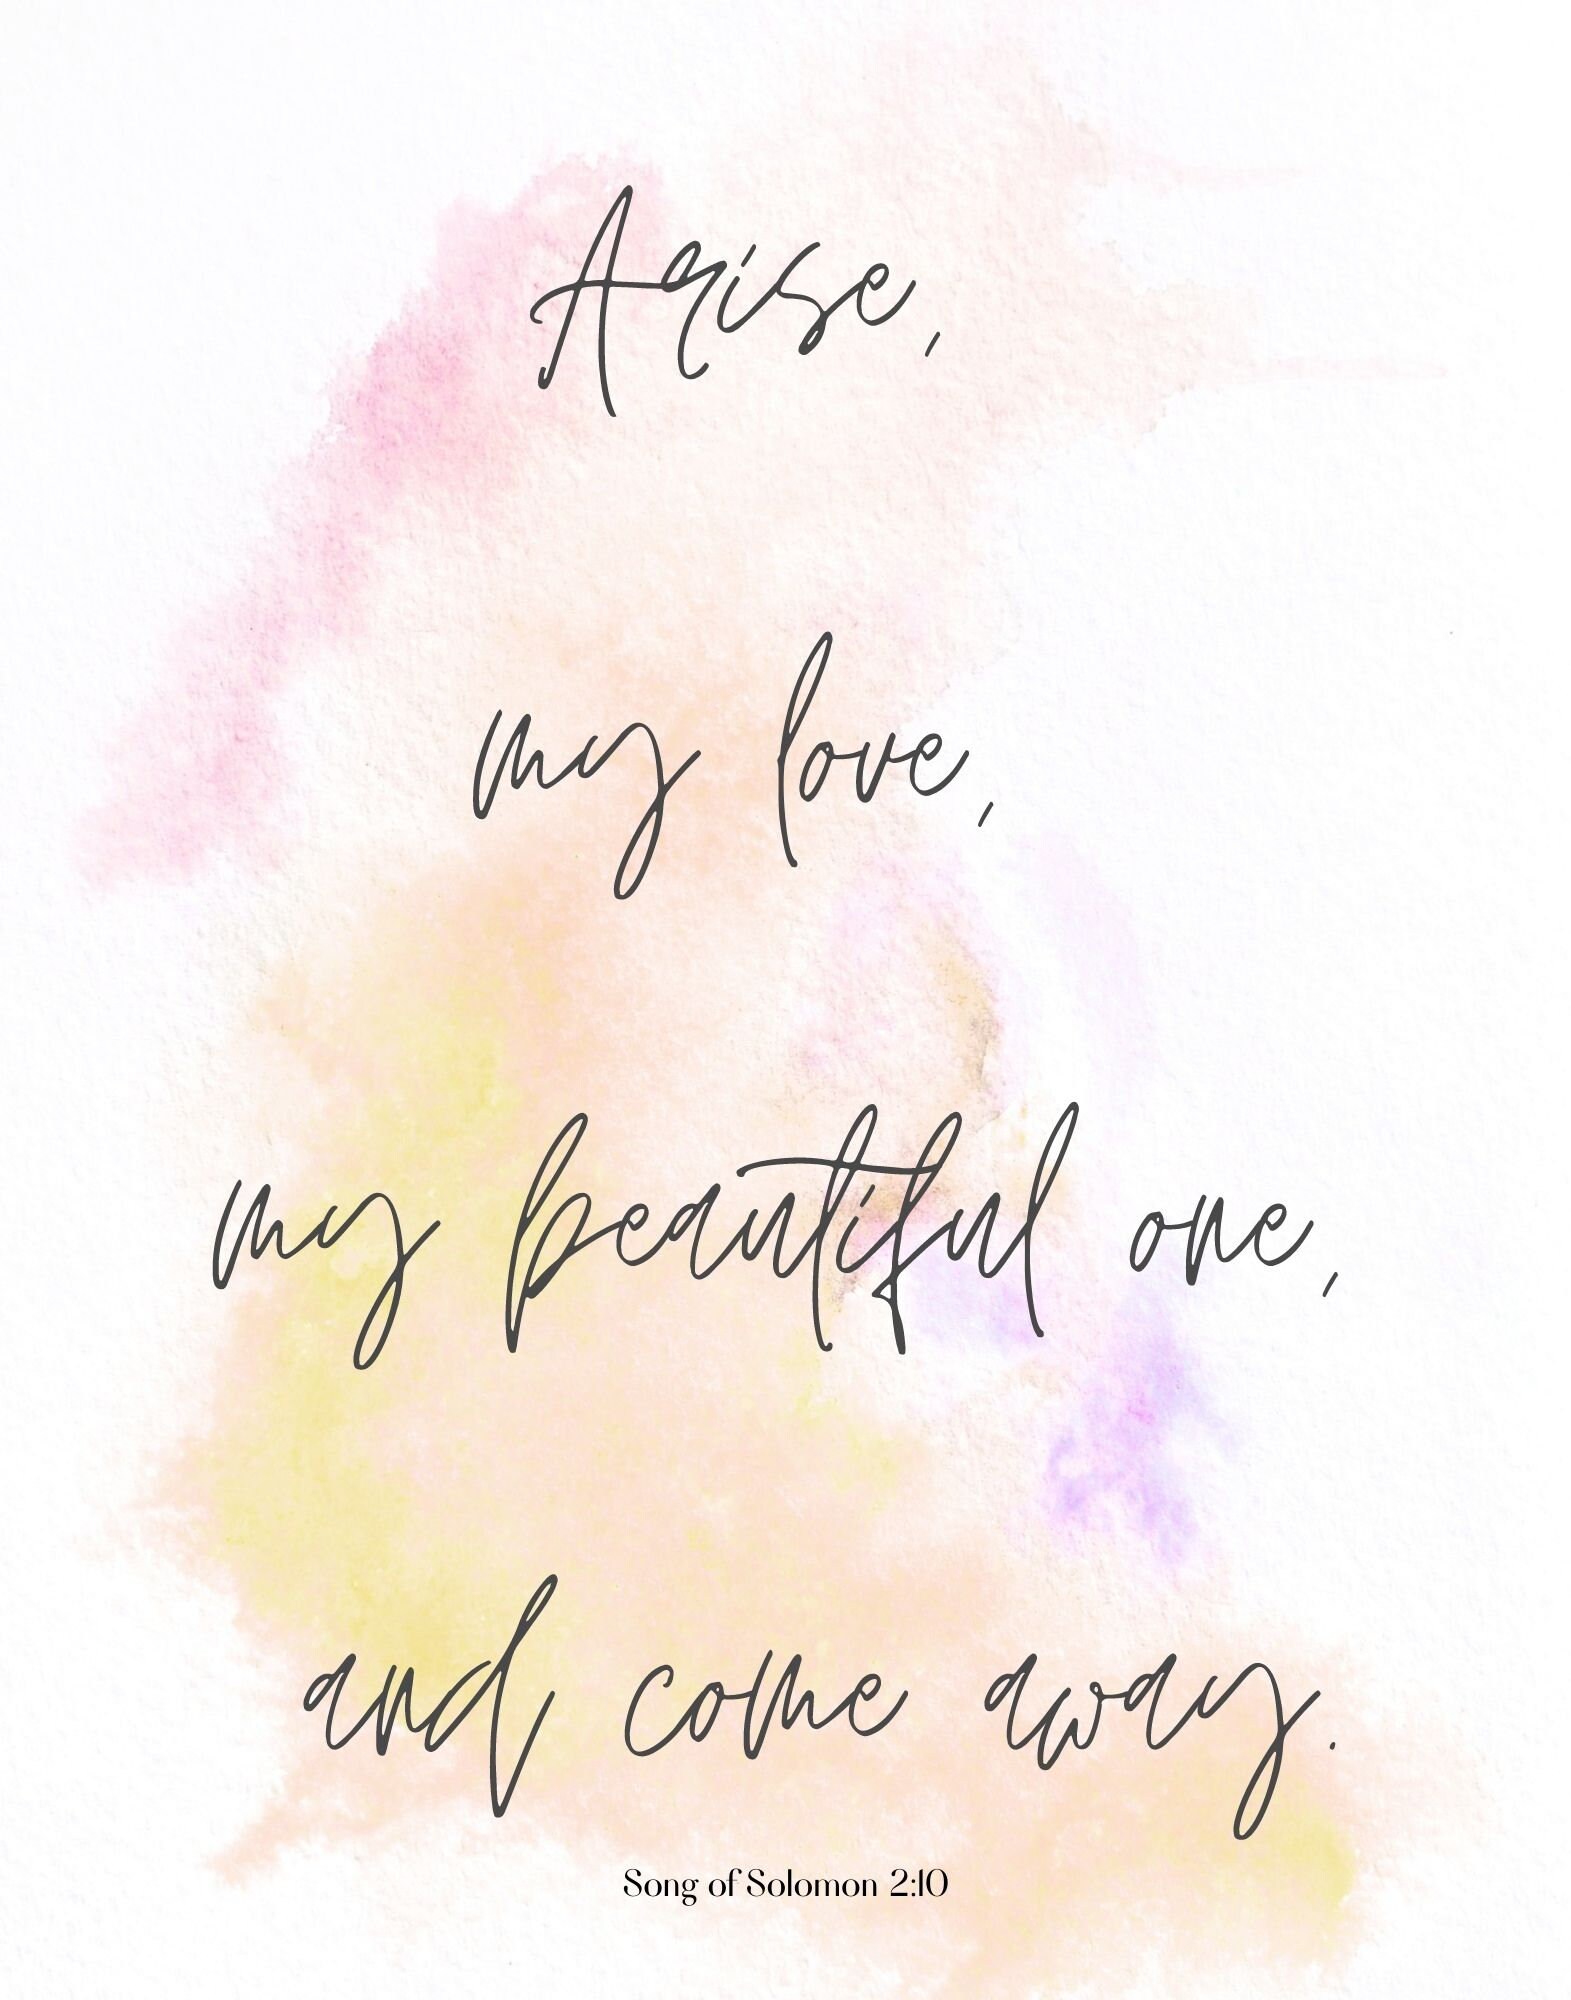 Arise,
my love,
my beautiful one,
and come away.
Song of Solomon 2:10